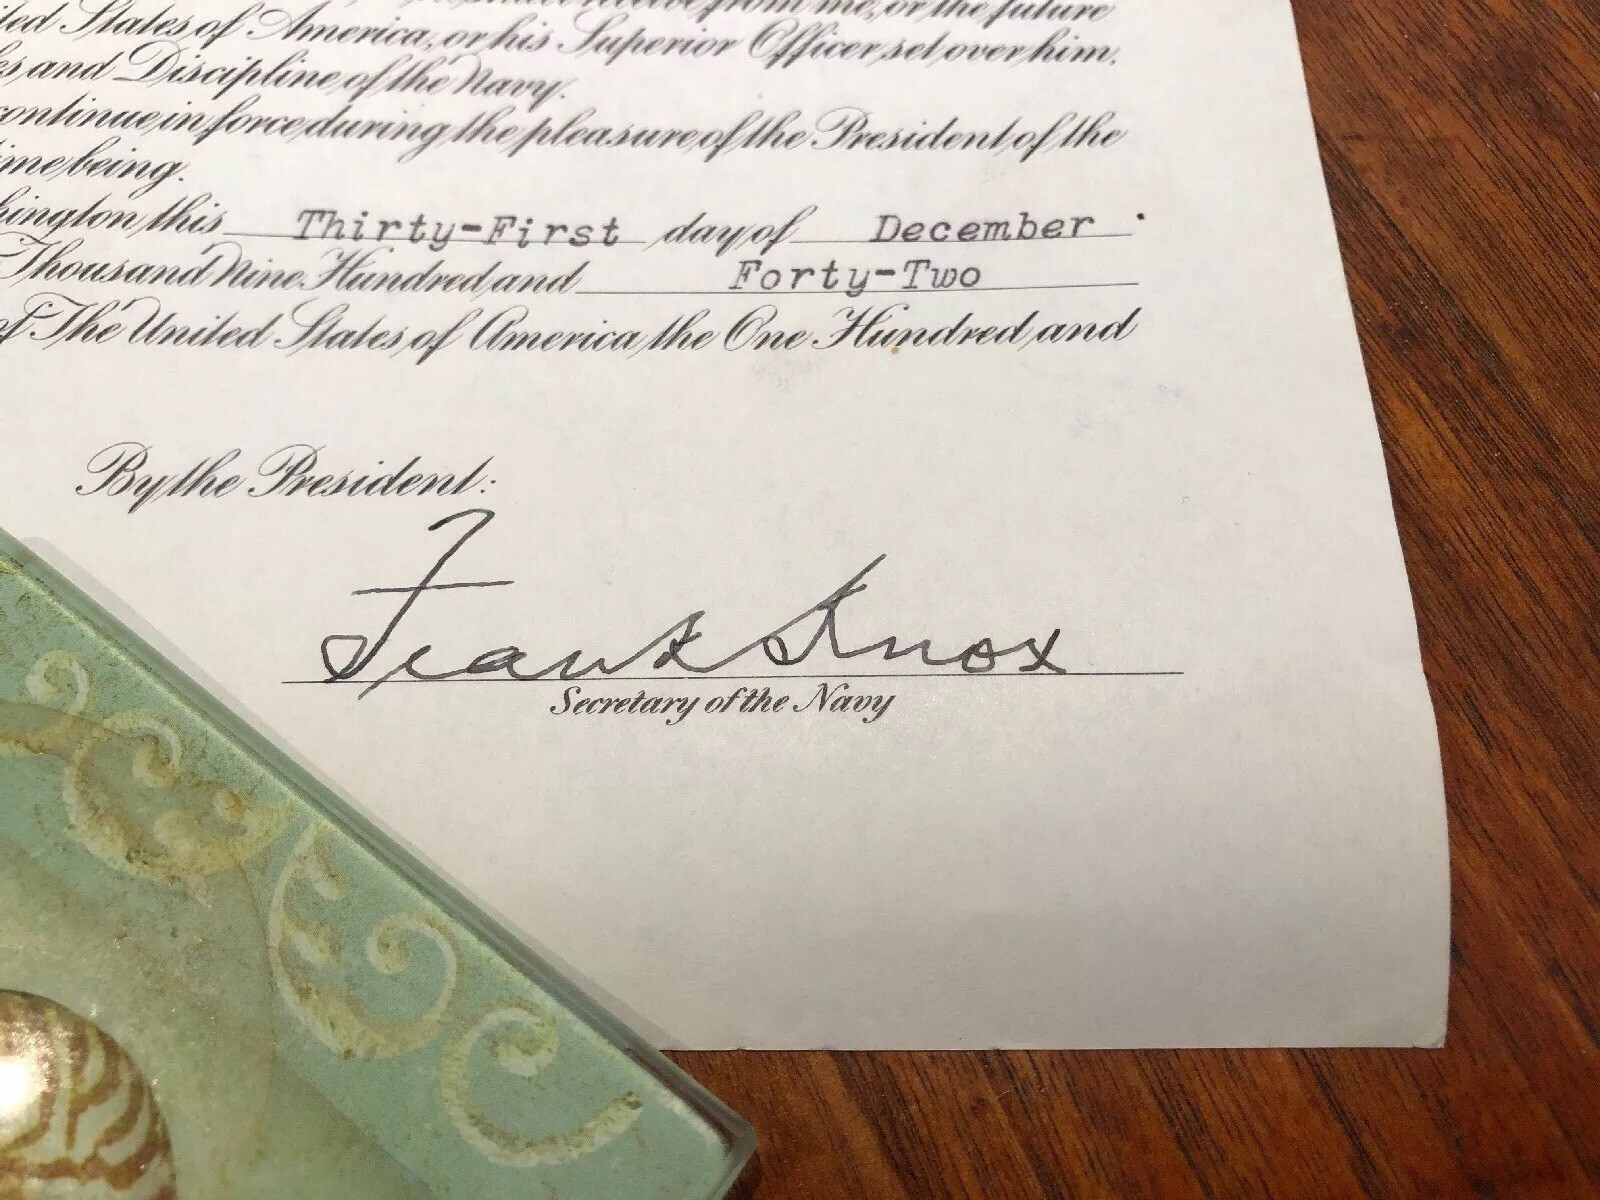 from me, or the future
States of America, or his Superior Officer set over him,
and Discipline of the Navy.
continue in force during the pleasure of the President of the
being.
this Thirty-First day of December
Thousand Nine Hundred and Forty-Two
of The United States of America the One Hundred and
By the President:
Frank Knox
Secretary of the Navy